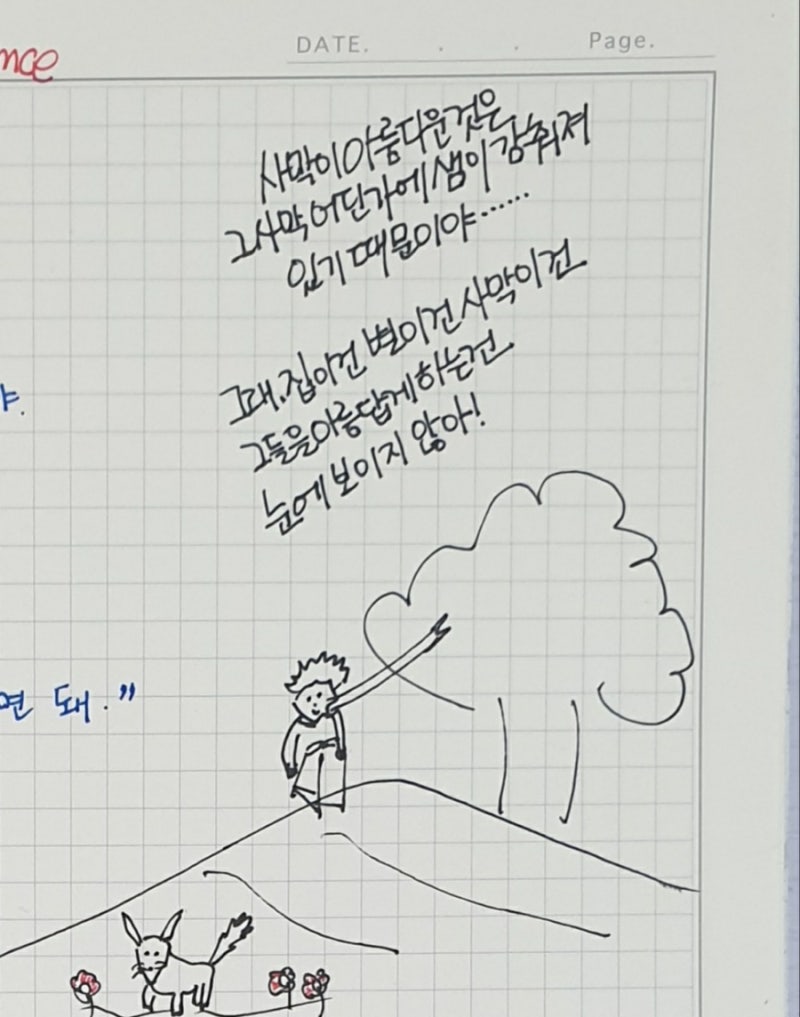 nce
DATE. . . Page.
사막이 아름다운 것은
그 사막 어딘가에 샘이 감춰져
있기 때문이야......
그래. 집이건 별이건 사막이건
그들을 아름답게 하는 건
눈에 보이지 않아!
야.
면 돼."